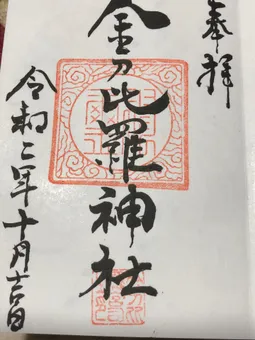 奉拝
金刀比羅神社
令和二年十月吉日